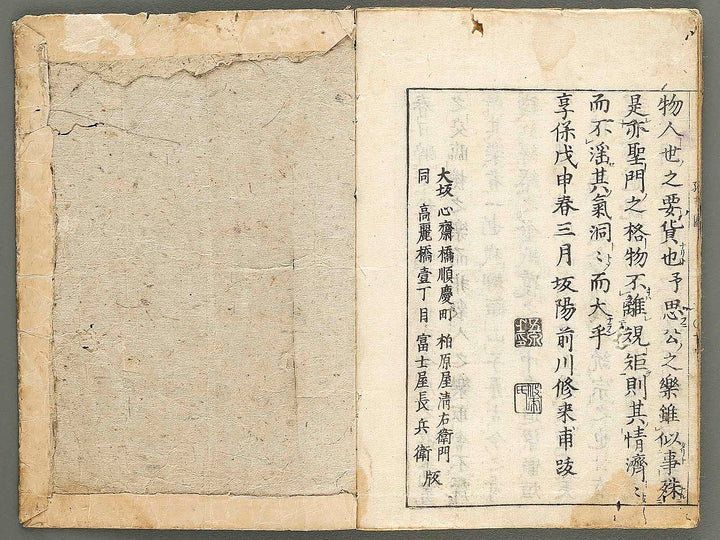 物人也之要貨也予思公之樂雖似事殊
是亦聖門之格物不離視矩則其情濟〻
而不滛其氣洞〻而大乎
享保戊申春三月坂陽前川修来甫跋
大坂 心齋橋順慶町 柏原屋清右衛門
同 高麗橋壹丁目 富士屋長兵衛 版